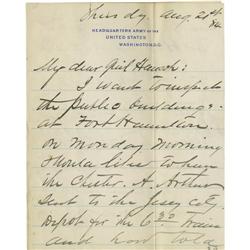 Thursday. Aug. 21st/84
HEADQUARTERS ARMY OF THE
UNITED STATES
WASHINGTON, D.C.
My dear Genl Hancock:
I want to inspect
the public buildings
at Fort Hamilton
on Monday morning
should like to have
the Chester A. Arthur
sent to the Jersey City
Depot for the 6 30 train
and now